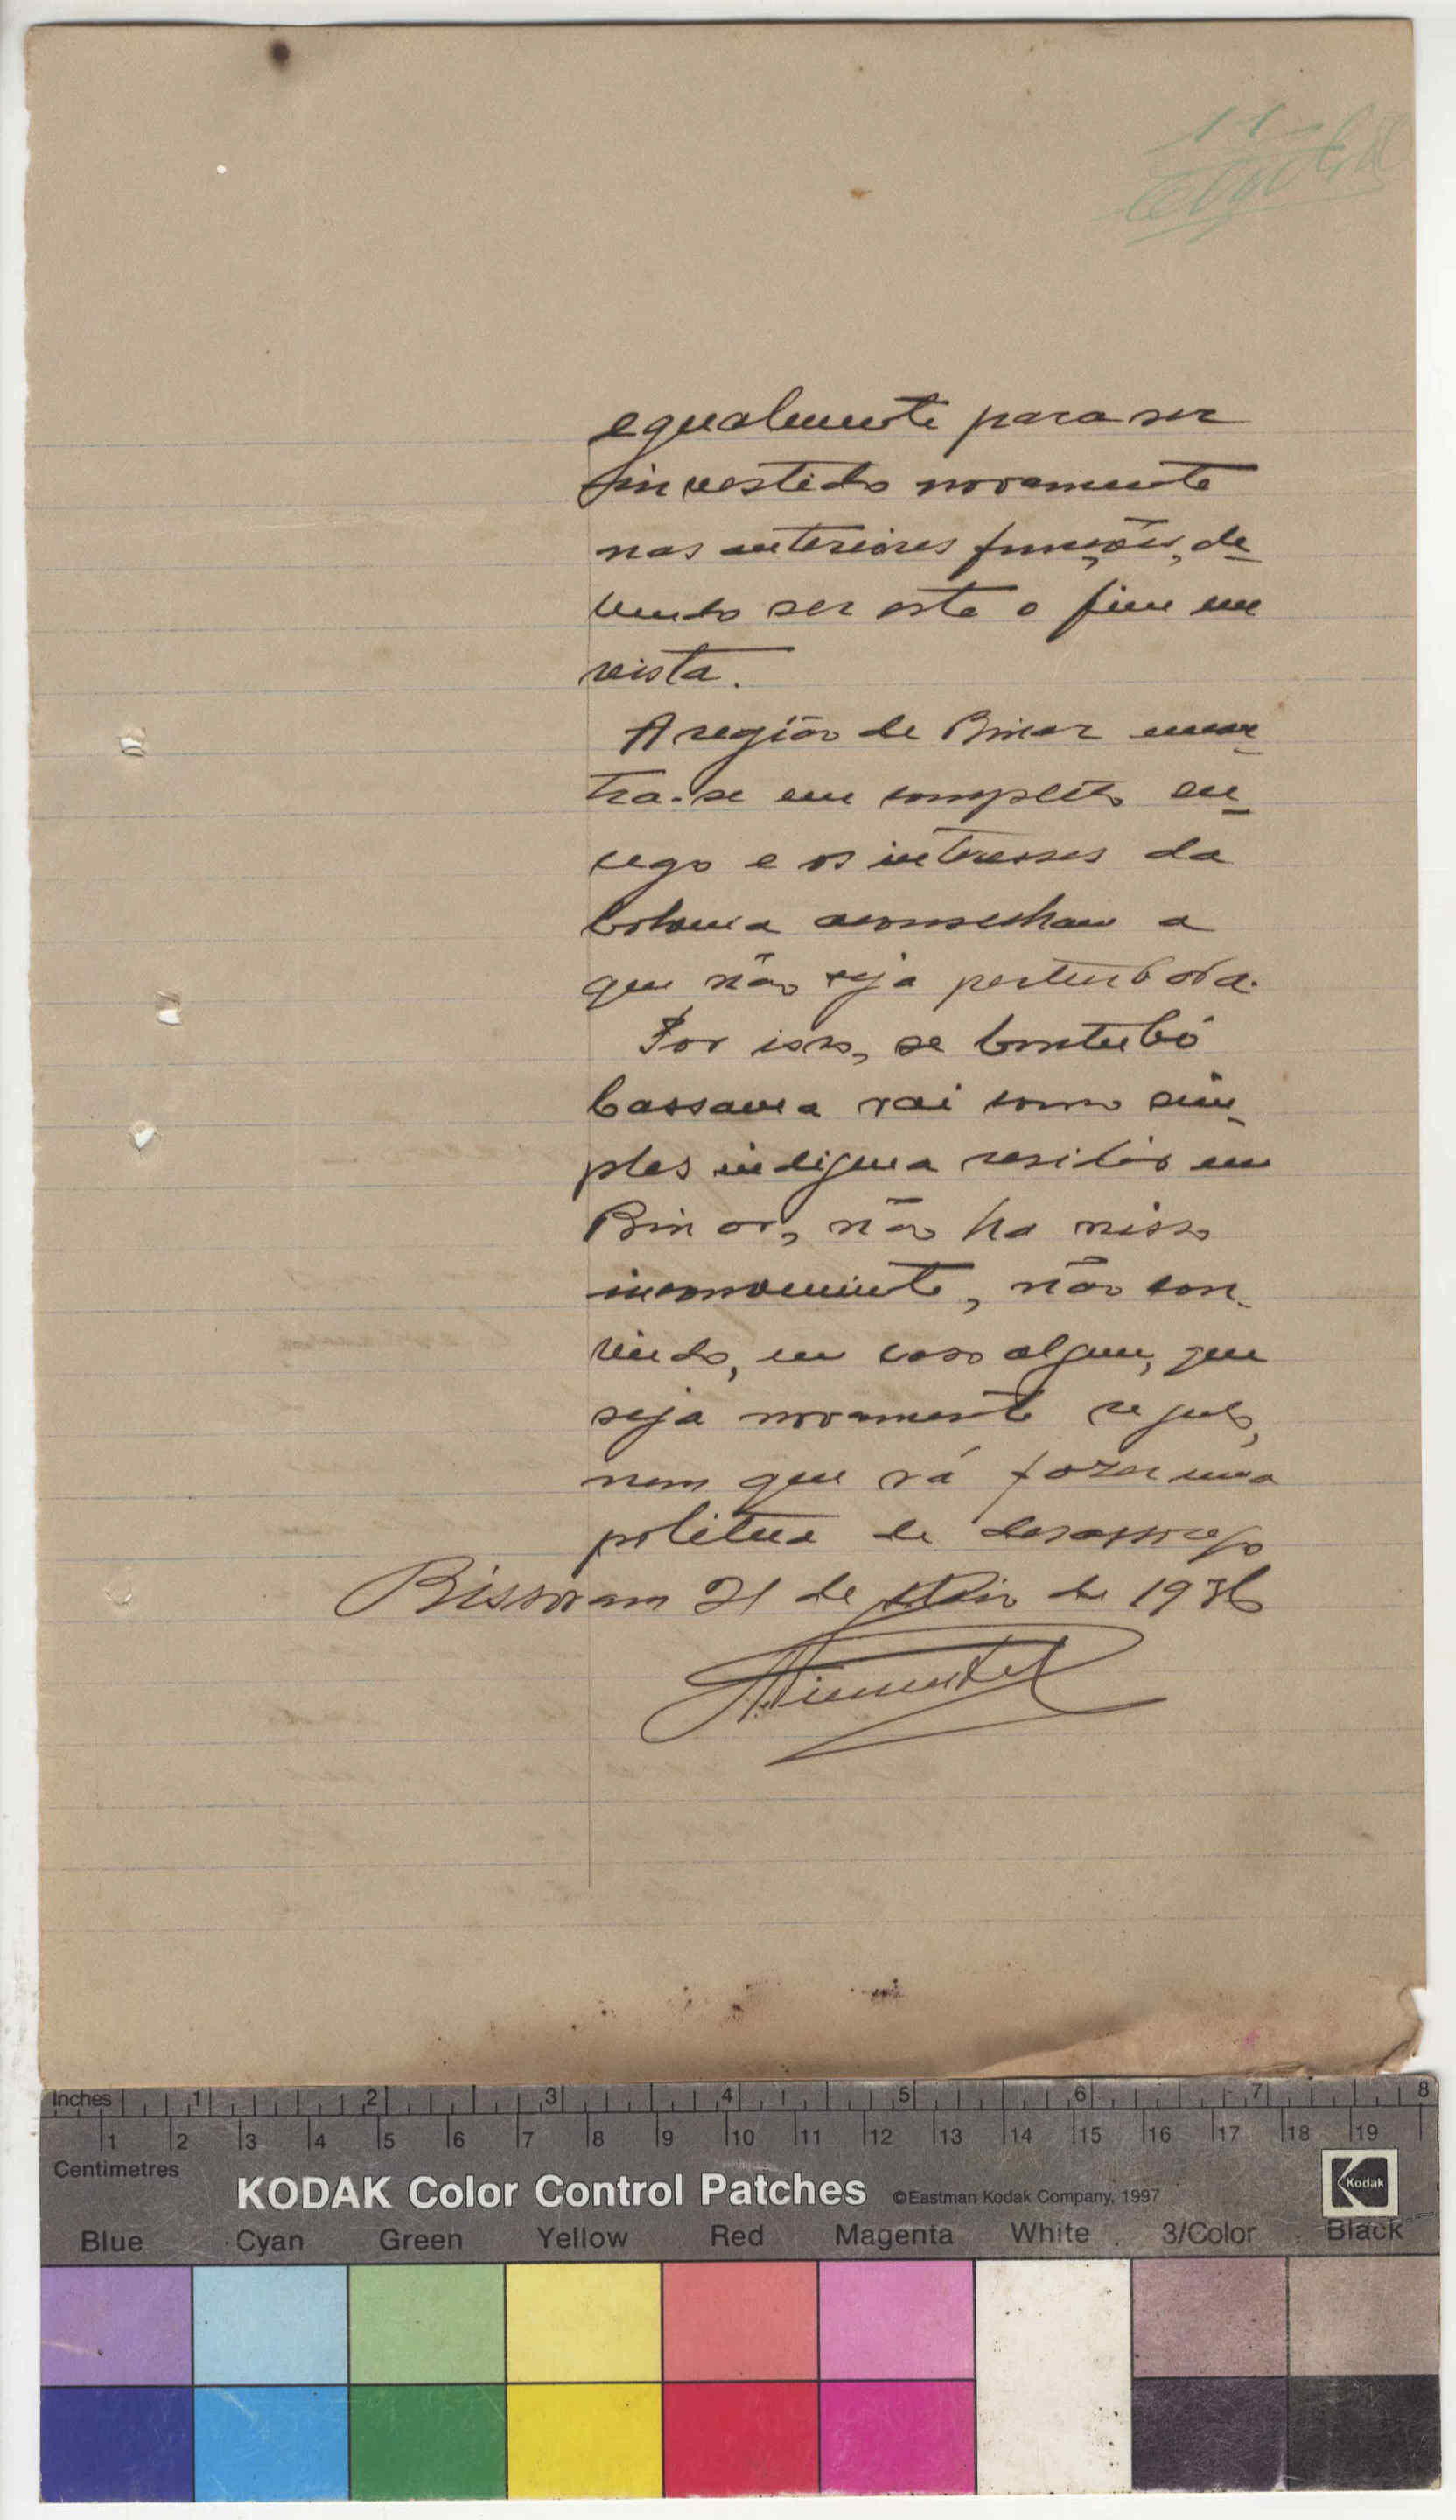 11
egualmente para ser
investido novamente
nas anteriores funções, de-
vendo ser este o fim em
vista.
A região de Binar encon-
tra-se em completo so-
cego e os interesses da
Colonia aconselham a
que não seja perturbada.
Por isso, se Contubó
Cassama vai como sim-
ples indigena residir em
Binar, não ha nisso
inconveniente, não con-
vindo, em caso algum, que
seja novamente regulo,
nem que vá fazer uma
politica de desassocego
Bissoram 21 de Maio de 1936
Pimentel
Inches 1 2 3 4 5 6 7 8
1 2 3 4 5 6 7 8 9 10 11 12 13 14 15 16 17 18 19
Centimetres
KODAK Color Control Patches ©Eastman Kodak Company, 1997 Kodak
Blue Cyan Green Yellow Red Magenta White 3/Color Black